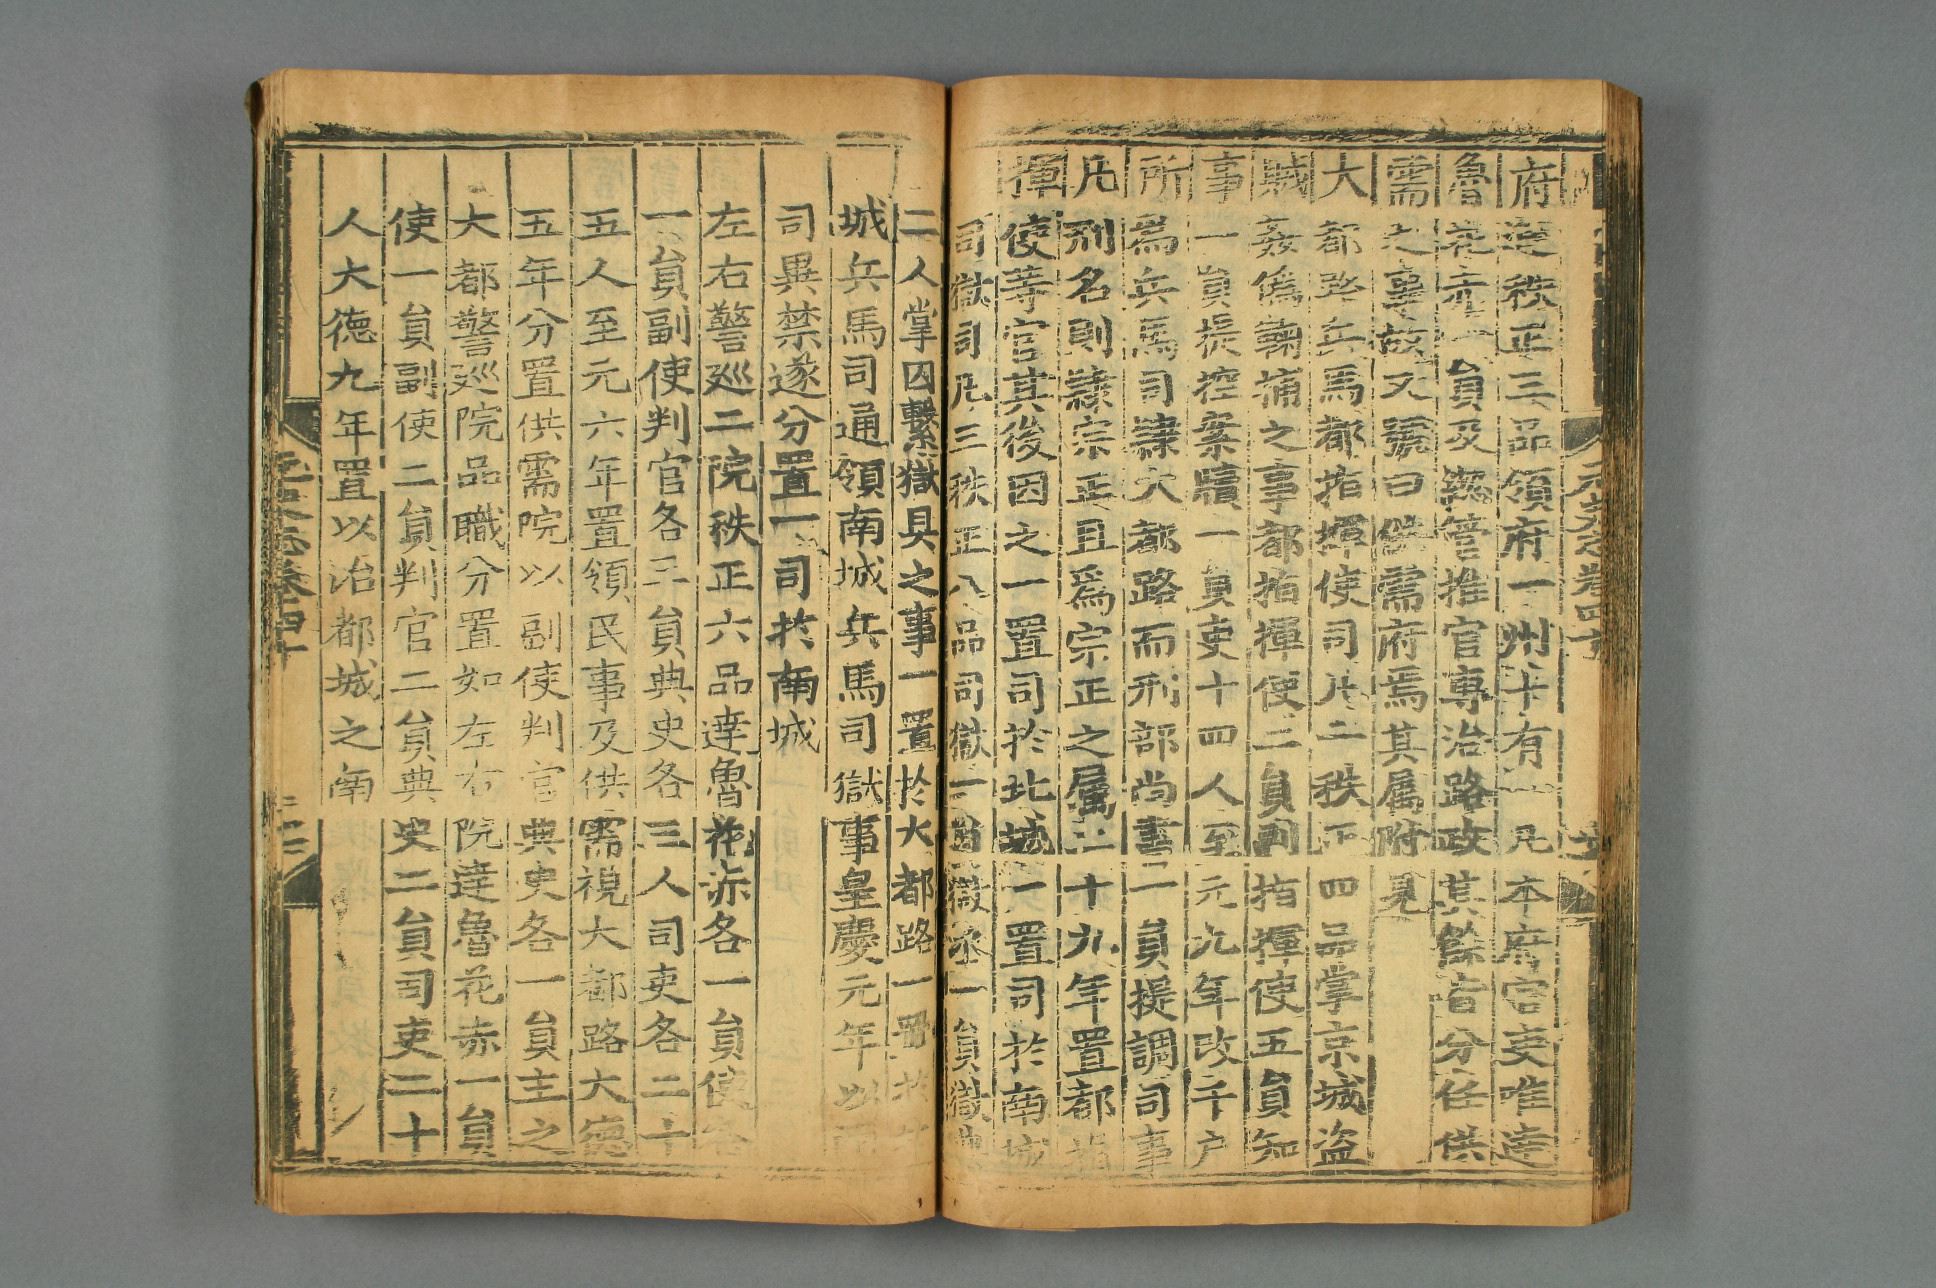 元史志卷四十
府進秩正三品領府一州十有一凡本府官吏唯達
魯花赤一員及總管推官專治路政其餘皆分任供
需之事故又號曰供需府焉其属附見
大都路兵馬都指揮使司凡二秩正四品掌京城盜
賊姦偽鞫捕之事都指揮使二員副指揮使五員知
事一員提控案牘一員吏十四人至元九年改千戶
所爲兵馬司隸大都路而刑部尚書一員提調司事
凡刑名則隸宗正且爲宗正之属二十九年置都指
揮使等官其後因之一置司於北城一置司於南城
司獄司凡三秩正八品司獄一員獄丞一員獄典
二人掌囚繫獄具之事一置於大都路一置於北
城兵馬司通領南城兵馬司獄事皇慶元年以兩
司異禁遂分置一司於南城
左右警巡二院秩正六品達魯花赤各一員使各
一員副使判官各三員典史各三人司吏各二十
五人至元六年置領民事及供需視大都路大德
五年分置供需院以副使判官典史各一員主之
大都警巡院品職分置如左右院達魯花赤一員
使一員副使二員判官二員典史二員司吏二十
人大德九年置以治都城之南
元史志卷四十